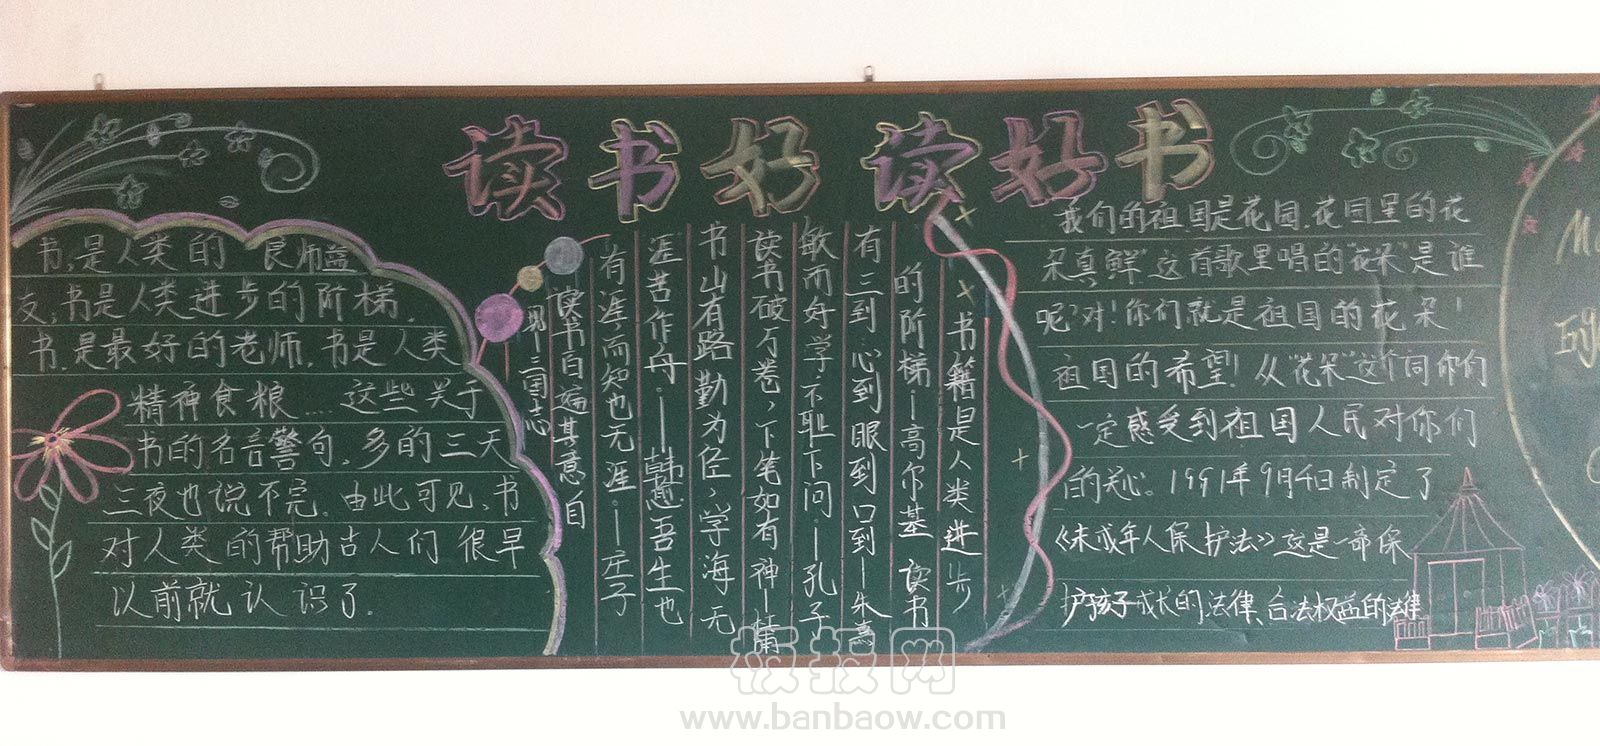 读书好读好书
书，是人类的 良师益
友，书是人类进步的阶梯，
书，是最好的老师，书是人类
精神食粮……这些关于
书的名言警句，多的三天
三夜也说不完。由此可见，书
对人类的帮助古人们 很早
以前就认识了。
书籍是人类进步
的阶梯—高尔基 读书
有三到心到眼到口到—朱熹
敏而好学不耻下问·—孔子
读书破万卷、下笔如有神—杜甫
书山有路勤为径、学海无
涯苦作舟·—韩愈 吾生也
有涯，而知也无涯·—庄子
读书自遍其意自
男 三国志
我们的祖国是花园，花园里的花
朵真鲜”这首歌里唱的“花朵”是谁
呢？对！你们就是祖国的花朵！
祖国的希望！从“花朵”这个词你们
一定感受到祖国人民对你们
的关心。1991年9月4日制定了
《未成年人保护法》这是一部保
护孩子成长的法律、合法权益的法律
板报网
www.banbaow.com